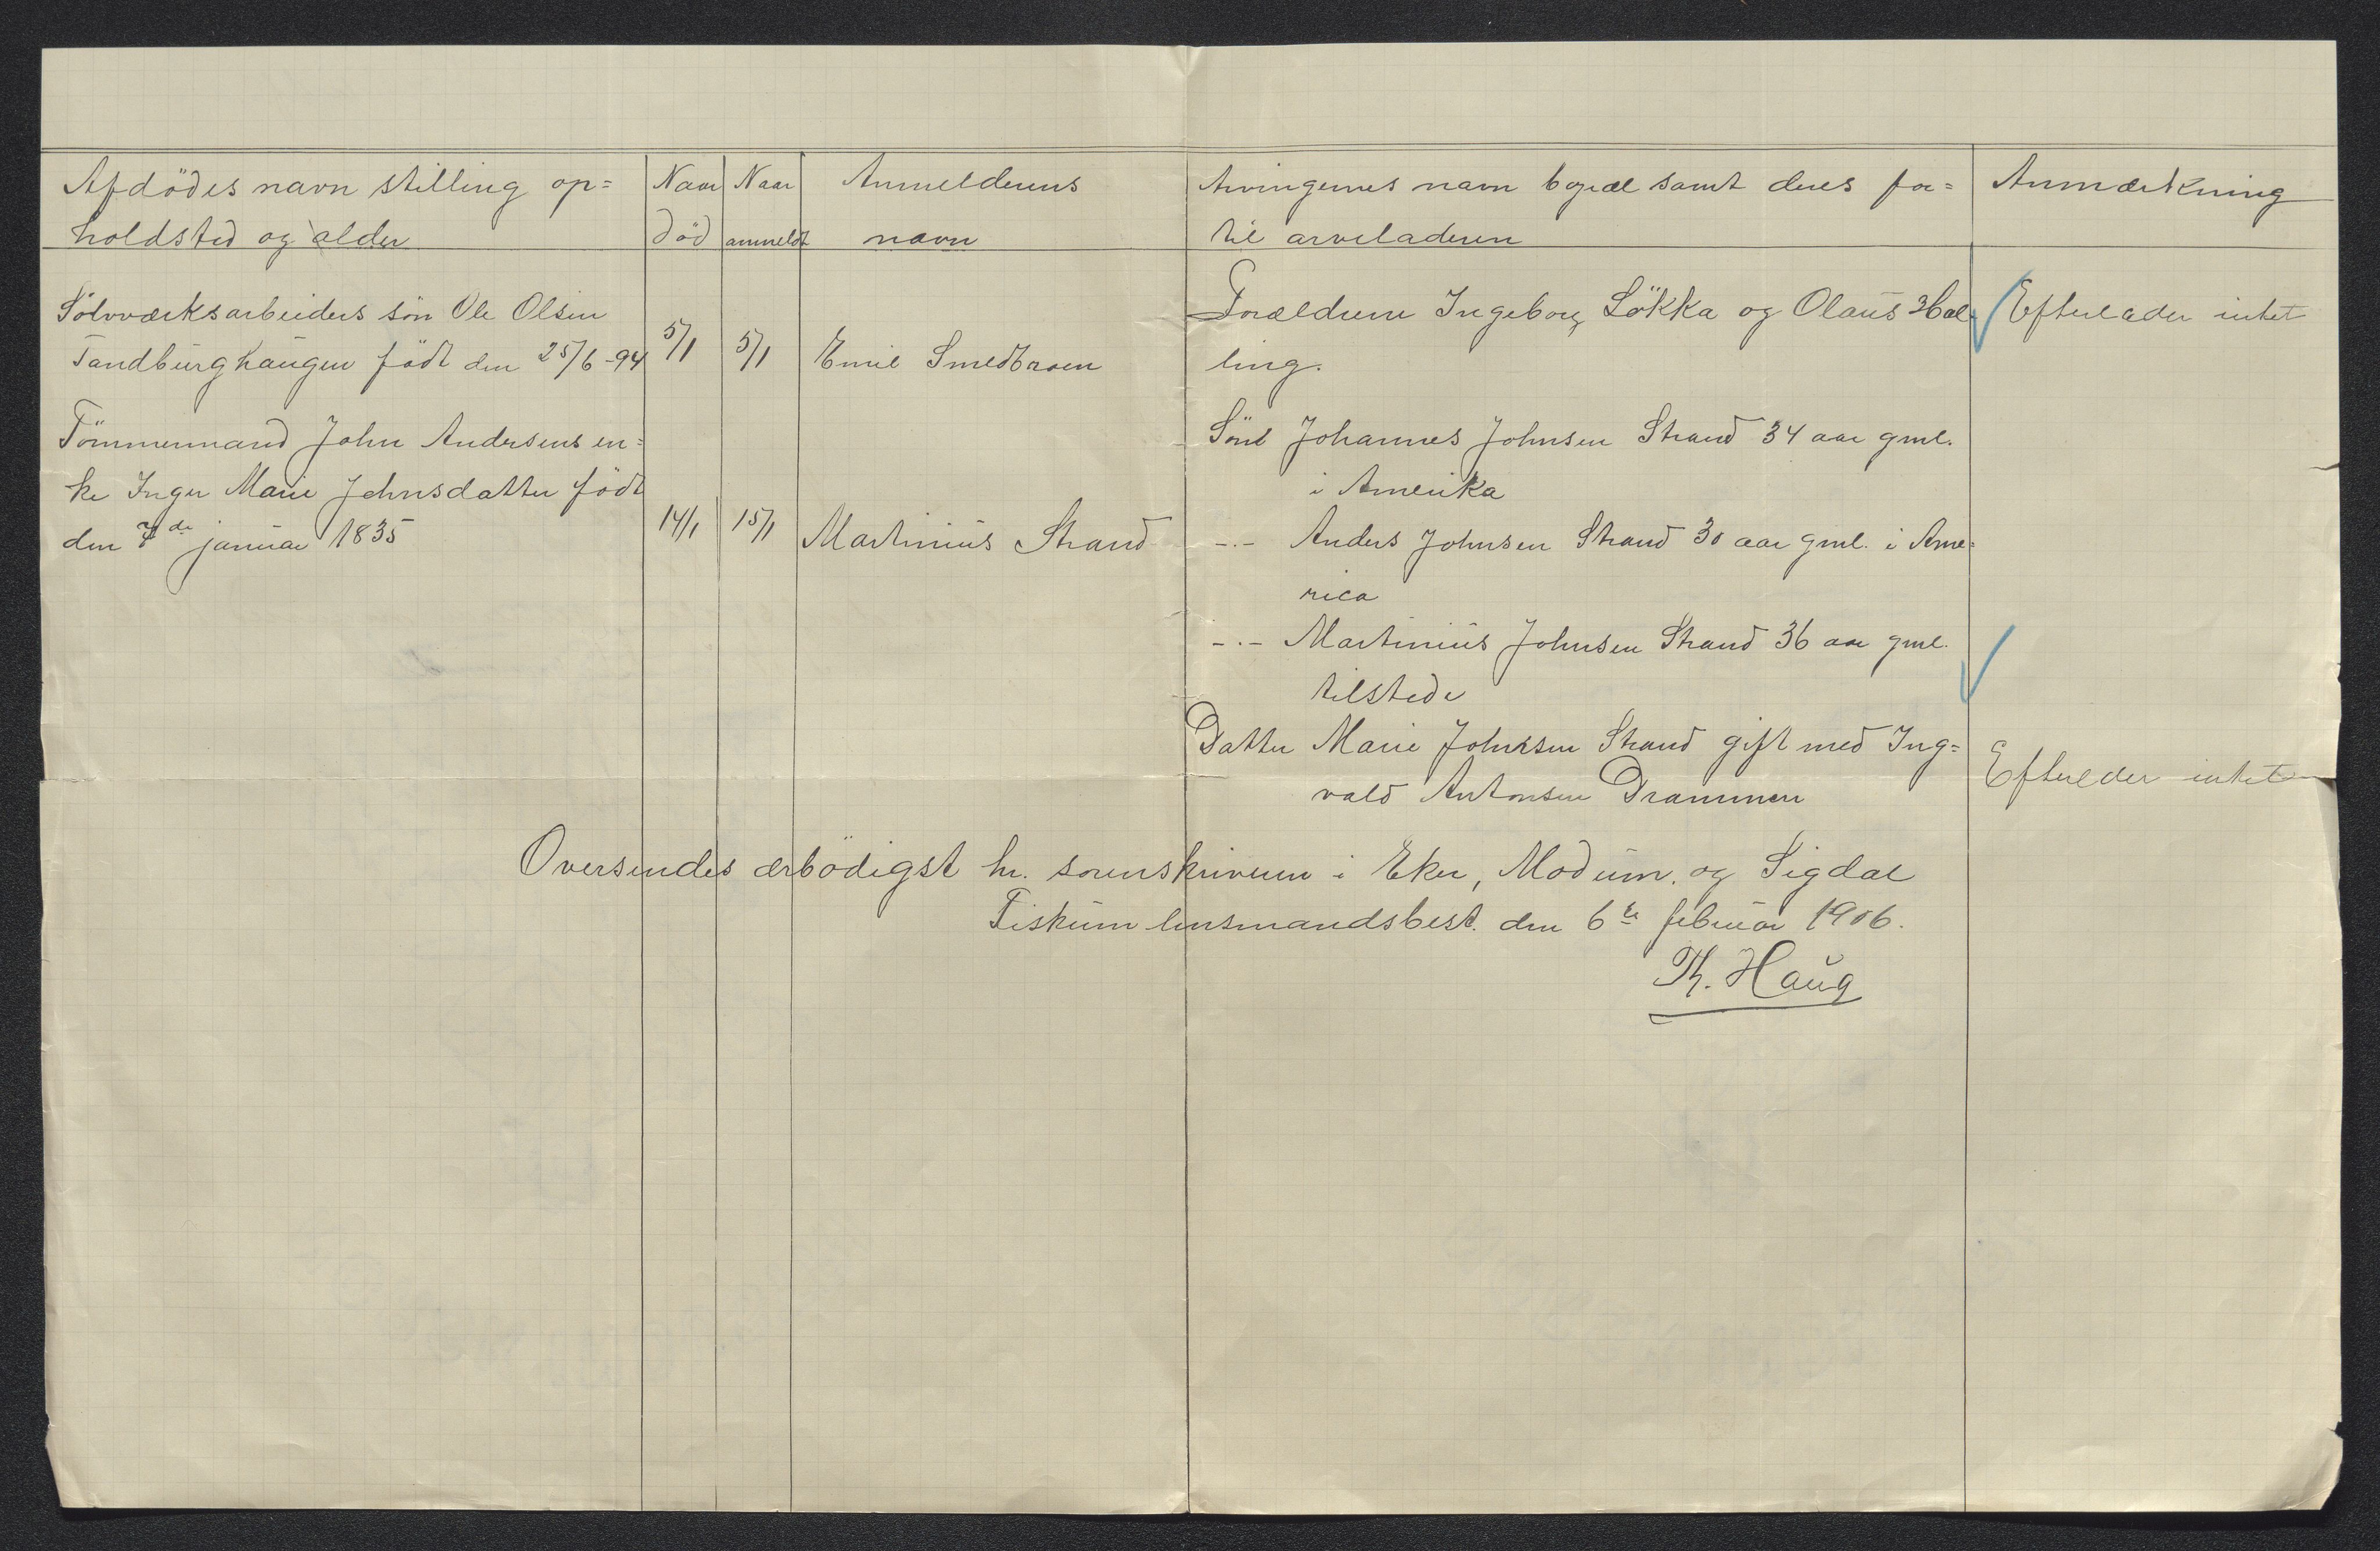 Afdödes navn stilling op=
holdsted og alder
Naar
död
Naar
anmeldt
Anmelderens
navn
Arvingernes navn bopæl samt deres for=
til arveladeren
Anmærkning
Sölvværksarbeiders sön Ole Olsen
Sandburghaugen födt den 25/6-94
5/1
5/1
Emil Smedbraaten
Forældrene Ingeborg Lökka og Olaus
ling.
Efterlader intet
Tömmermand John Andersens en=
ke Inger Marie Johnsdatter födt
den 7de januar 1835
14/1
15/1
Martinius Strand
Sönl Johannes Johnsen Strand 34 aar gml.
i Amerika
-.- Anders Johnsen Strand 30 aar gml. i Ame=
rica
-.- Martinius Johnsen Strand 36 aar gml.
tilstede
Datter Marie Johnsen Strand gift med Ing=
vald Antonsen Drammen
Efterleder intet
Oversendes ærbödigst hr. sorenskriveren i Eker, Modum, og Sigdal
Fiskum lensmandsbest. den 6te februar 1906.
Th. Haug